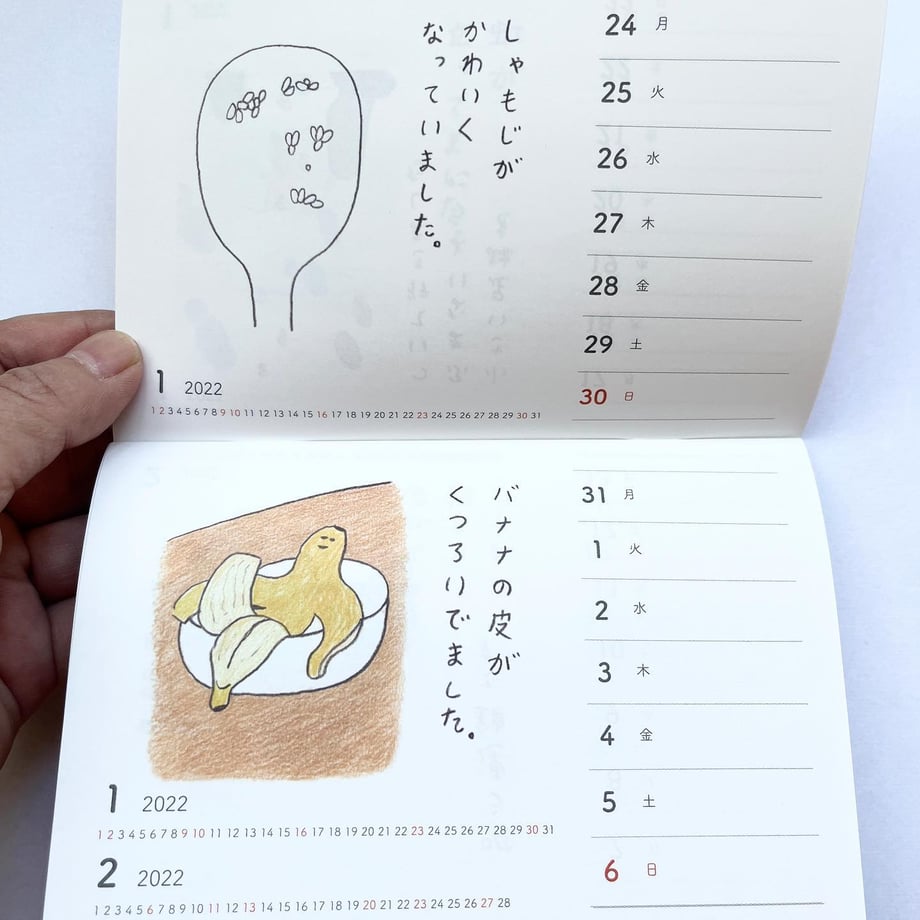 しゃもじが
かわいく
なっていました。
24 月
25 火
26 水
27 木
28 金
29 土
30 日
1 2022
1 2 3 4 5 6 7 8 9 10 11 12 13 14 15 16 17 18 19 20 21 22 23 24 25 26 27 28 29 30 31
バナナの皮が
くつろいでました。
31 月
1 火
2 水
3 木
4 金
5 土
6 日
1 2022
1 2 3 4 5 6 7 8 9 10 11 12 13 14 15 16 17 18 19 20 21 22 23 24 25 26 27 28 29 30 31
2 2022
1 2 3 4 5 6 7 8 9 10 11 12 13 14 15 16 17 18 19 20 21 22 23 24 25 26 27 28